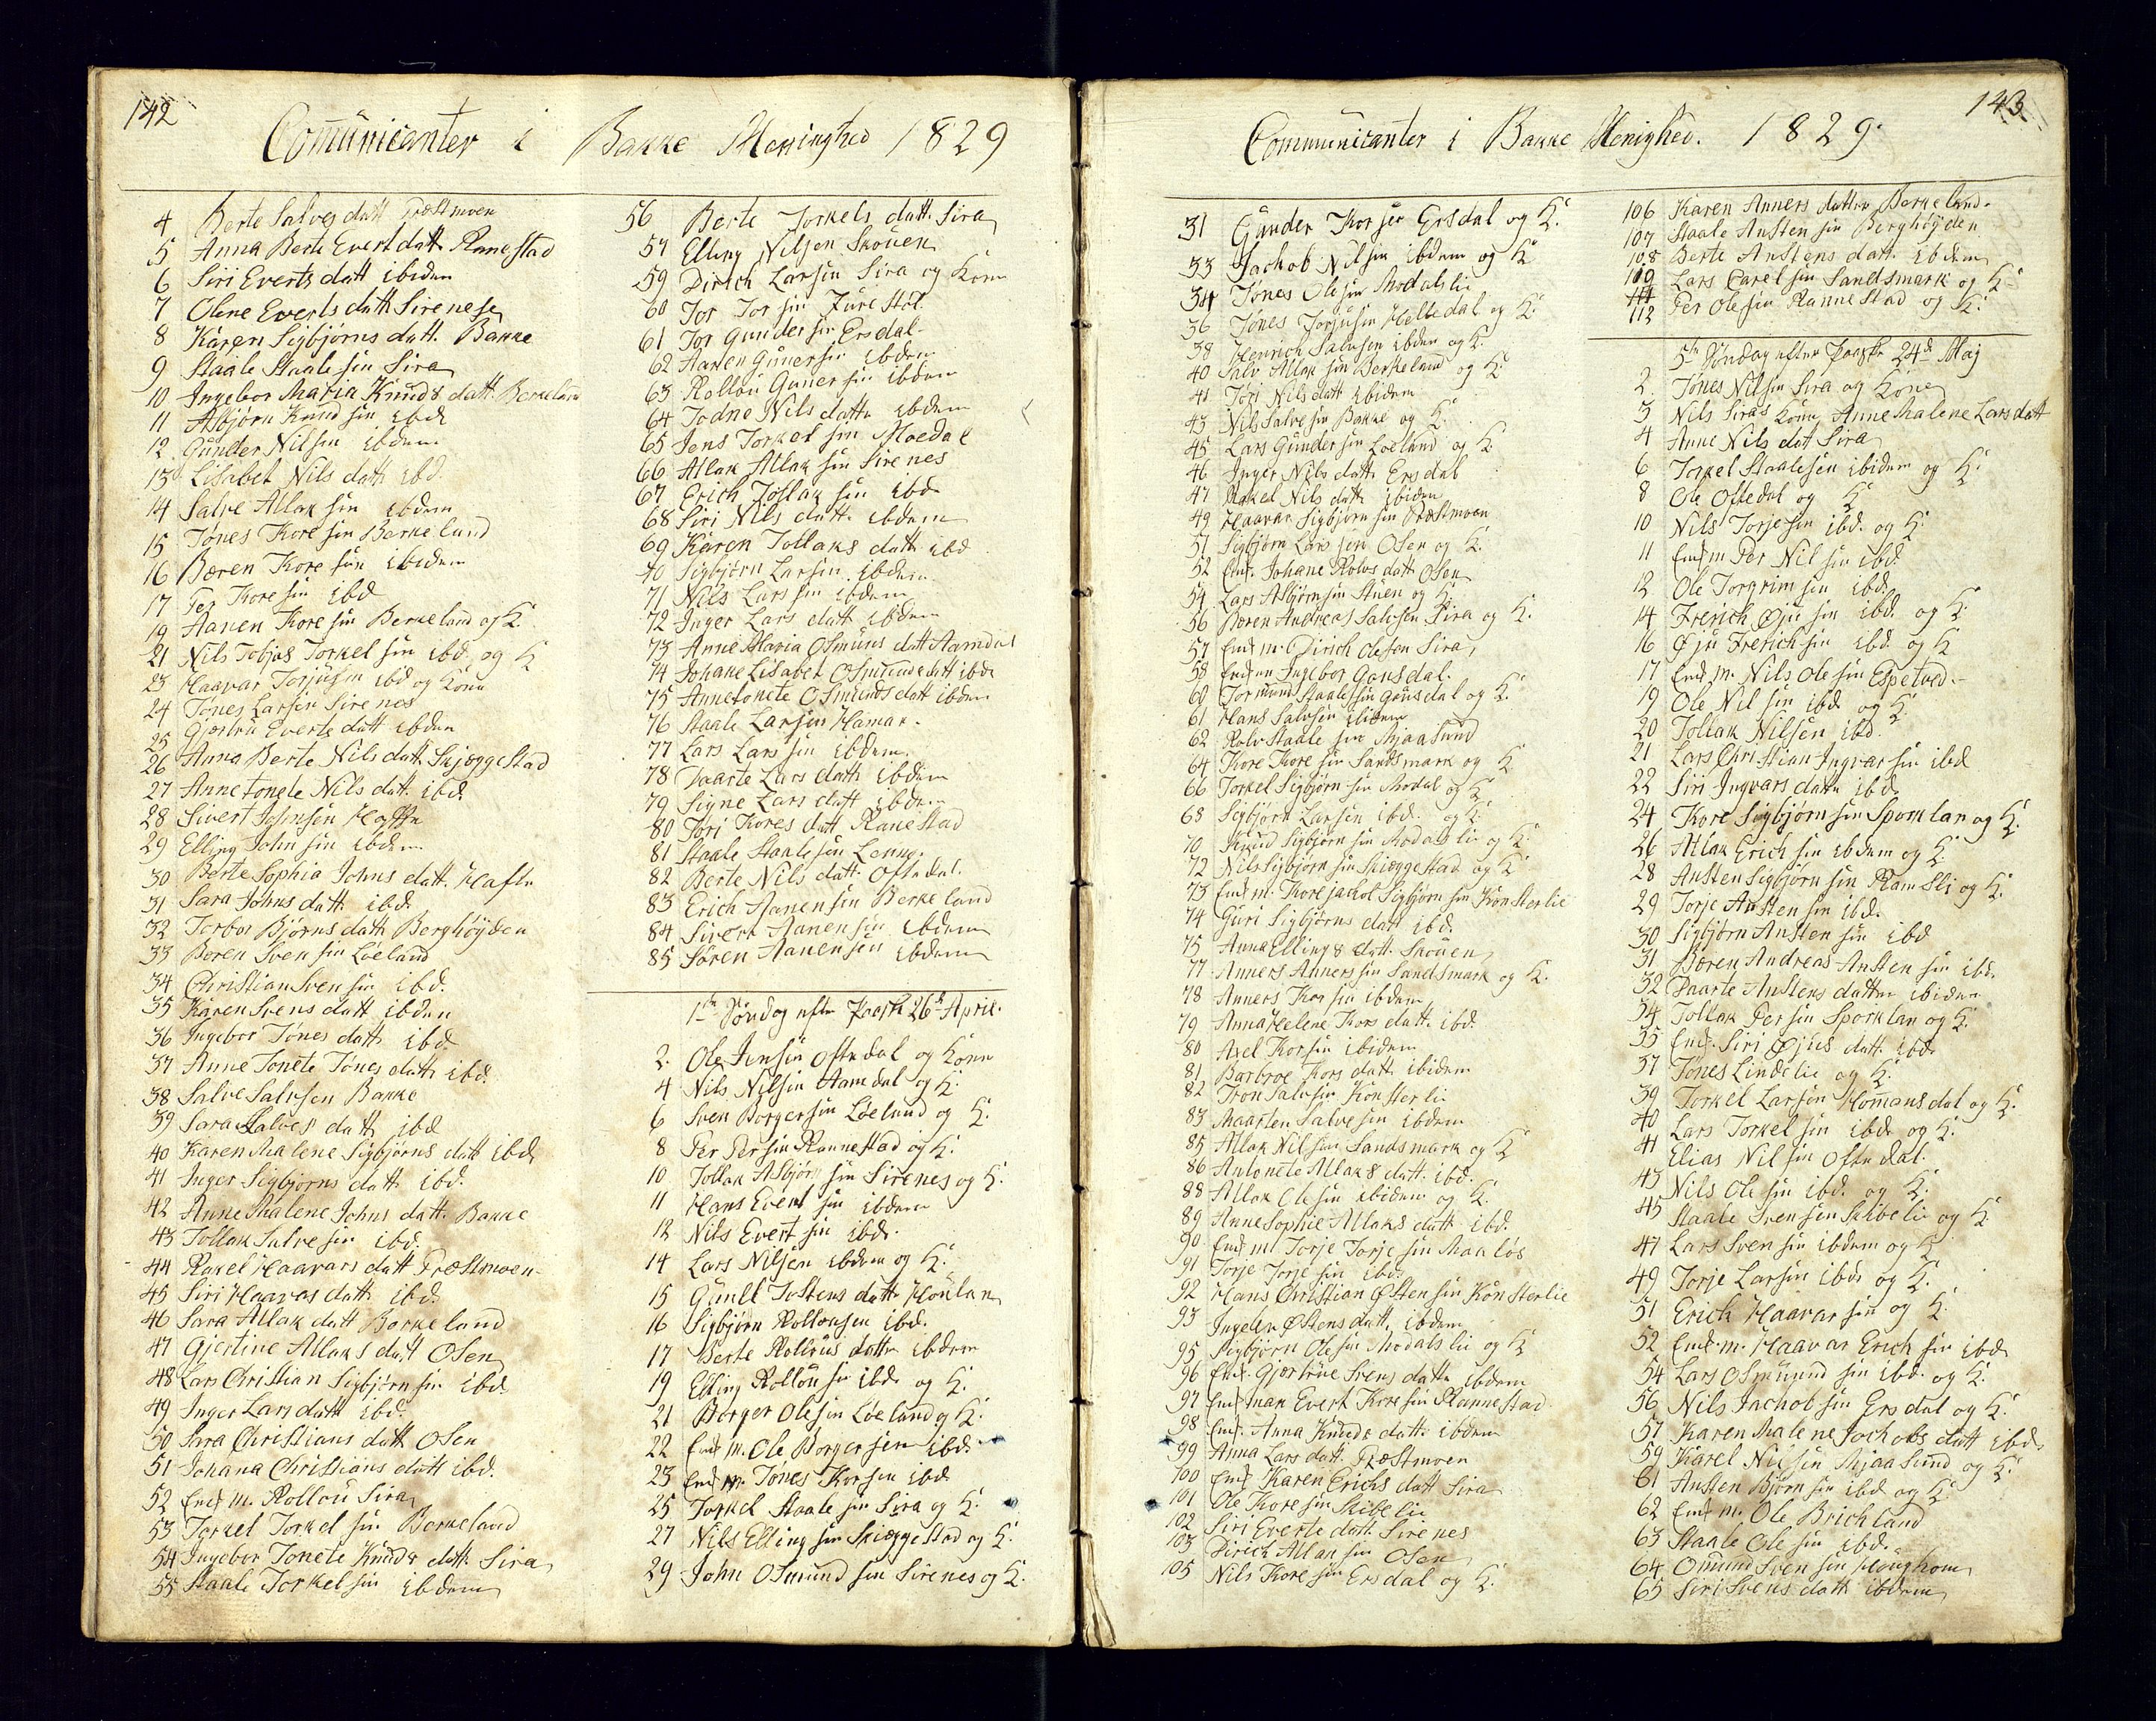 142
Com̄unicanter i Bakke Menninghed 1829
4 Berte Salves datt Præstmoen
5 Anna Berte Evert datt. Ranestad
6 Siri Everts datt ibidem
7 Olene Everts datt Sirenese
8 Karen Sigbjørns datt. Bakke
9 Staale Staale sin Sira
10 Ingebor Maria Knuds datt. Berkeland
11 Asbjørn Knud sin ibd
12 Gunder Nilsin ibdem
13 Lisabet Nils datt ibd.
14 Salve Atlak sin ibdem
15 Tønes Kore sin Berkeland
16 Bæren Kore sin ibidem
17 Per Kore sin ibd
19 Aanen Kore sin Berkeland og K.
21 Nils Tobjas Torkel sin ibd. og K
23 Haavar Torjusin ibd og Kone
24 Tønes Larsin Sirenes
25 Gjertru Everts datt ibdem
26 Anna Berte Nils datt Skjæggestad
27 Anne Tonete Nils datt. ibd.
28 Sivert Johnsin Hafte
29 Elling John sin ibdem
30 Berte Sophia Johns datt. Hafte
31 Sara Johns datt ibd.
32 Torbor Bjørns datt Berghøyden
33 Beren Sven sin Løeland
34 Christian Sven sin ibd.
35 Karen Svens datt ibdem
36 Ingebor Tønes datt ibd.
37 Anne Tonete Tønes datt ibd.
38 Salve Salvsen Bakke
39 Sara Salves datt ibd
40 Karen Malene Sigbjørns datt ibd.
41 Inger Sigbjørns datt ibd.
42 Anne Malene Johns datt. Bakke
43 Tollak Salve sin ibd.
44 Rakel Haavars datt Præstmoen
45 Siri Haavas datt ibd.
46 Sara Atlak datt Berkeland
47 Gjertine Atlaks datt Osen
48 Lars Christian Sigbjørn sin ibd
49 Inger Lars datt ibd.
50 Sara Christians datt Osen
51 Johana Christians datt ibd.
52 Enk m. Rollou Sira
53 Torkel Torkel sin Berkeland
54 Ingebor Tonete Knuds datt Sira
55 Staale Torkel sin ibdem
56 Berte Torkels datt. Sira
57 Elling Nilsen Skouen
59 Dirich Larsin Sira og Kone
60 Tor Tor sin Furestøl
61 Tor Gunder sin Ersdal
62 Aanen Guner sin ibdem
63 Rollou Guner sin ibdem
64 Todne Nils datte ibdem
65 Jens Torkel sin Moedal
66 Atlak Atlak sin Sirenes
67 Erich Tollak sin ibd
68 Siri Nils datt ibdem
69 Karen Tollaks datt ibd
70 Sigbjørn Larsin ibdem
71 Nils Lars sin ibdem
72 Inger Lars datt ibdem
73 Anne Maria Osmuns datt Aamdal
74 Johane Lisabet Osmunds datt ibd.
75 Anne Tonete Osmunds datt ibdem
76 Staale Larsin Hamar.
77 Lars Lars sin ibdem.
78 Vaarte Lars datt ibdem
79 Signe Lars datt ibdem
80 Tøri Kores datt Ranestad
81 Staale Staale sin
82 Berte Nils datt. Oftedal.
83 Erich Aanen sin Berkeland
84 Sivert Aanen sin ibdem
85 Søren Aanensen ibdem
1te Søndag efter Paaske 26de April.
2. Ole Jensin Oftedal og Kone
4 Nils Nilsin Aamdal og K.
6 Sven Borgersin Løeland og K.
8 Per Persin Rannestad og K.
10 Tollak Asbjørn sin Sirenes og K.
11 Hans Evert sin ibdem
12 Nils Evert sin ibd.
14 Lars Nilsen ibdem og K.
15 Gunil Tostens datt Houlan
16 Sigbjørn Rollousen ibd.
17 Berte Rollous datte ibdem
19 Elling Rollou sin ibd. og K.
21 Børger Olesin Løeland og K.
22 Enk m. Ole Borgersen ibd.
23 Enk m. Tønes Korsen ibd
25 Torkel Staale sin Sira og K.
27 Nils Elling sin Skiæggestad og K.
29 John Osmund sin Sirenes og K.
143
Communicanter i Bakke Menighed. 1829.
31 Gunder Korsen Ersdal og K.
33 Jachob Nilsin ibdem og K
34 Tønes Olesin Modalsli
36 Tønes Torjusin Helledal og K.
38 Henrich Salvesen ibdem og K.
40 Salv Atlak sin Berkeland og K.
41 Tøri Nils datt ibidem
43 Nils Salve sin Bakke og K.
45 Lars Gunder sin Løeland og K
46 Inger Nils datt. Ersdal
47 Rakel Nils datt ibidem
49 Haavar Sigbjørn sin Præstmoen
51 Sigbjørn Lars sen Osen og K.
52 Enk. Johane Rolvs datt Osen
54 Lars Asbjørnsin Stuen og K.
56 Bæren Andreas Salvsen Sira og K.
57 Enk m. Dirich Olesen Sira
58 Enken Ingebor Gausdal.
60 Tormund Staale sin Gausdal og K.
61 Hans Salvsin ibidem
62 Rolv Staale sin Mjaasund
64 Kore Kore sin Sandsmark og K
66 Torkel Sigbjørn sin Modal og K
68 Sigbjørn Larsin ibd. og K.
70 Knud Sigbjørn sin Modalsli og K.
72 Nils Sigbjørn sin Skiæggestad og K
73 Enk m. Kore Jachol Sigbjørn sin Konsterlie
74 Guri Sigbjørns datt ibd.
75 Anna Ellings datt. Skouen
77 Anners Anners sin Sandsmark og K.
78 Anners Kor sin ibdem
79 Anna Helene Kors datt. ibd.
80 Axel Korsin ibidem
81 Barbroe Kors datt ibidem
82 Tron Salvsin Konsterli
83 Maarten Salve sin ibdem
85 Atlak Nil sin Sandsmark og K
86 Antonete Atlaks datt. ibd.
88 Atlak Olesin ibidem og K.
89 Anne Sophie Atlaks datt ibd.
90 Enk m. Torje Torje sin Maaløs
91 Torje Torje sin ibd.
92 Hans Christian Østen sin Konsterlie
93 Ingeber Østens datt. ibdem
95 Sigbjørn Olesin Modalslie og K
96 Enk. Gjertrue Svens datte ibdem
97 Enkman Evert Kore sin Rannestad
98 Enk. Anna Knuds datt. ibdem
99 Anna Lars datt. Præstmoen
100 Enk Karen Erichs datt Sira
101 Ole Kore sin Skibelie
102 Siri Everts datt. Sirenes
103 Dirich Atlak sin Osen
105 Nils Kore sin Ersdal og K.
106 Karen Anners datter Berkeland.
107 Staale Austen sin Berghøyden
108 Berte Austens datt. ibdem
109 Lars Carel sin Sandsmark og K
112 Per Olesin Rannestad og K.
5te Søndag efter Paaske 24de Maj
2. Tønes Nilsin Sira og Kone
3 Nils Siras Kone Anne Malene Lars datt
4 Anne Nils dat Sira
6 Torkel Staalesen ibidem og K.
8 Ole Oftedal og K
10 Nils Torjesin ibd. og K.
11 Enk m Per Nil sin ibd.
12 Ole Torgrim sin ibd.
14 Frerich Øju sin ibd. og K.
16 Øju Frerich sin ibd og K
17 Enk m. Nils Ole sin Espetved.
19 Ole Nil sin ibd. og K.
20 Tollak Nilsen ibd.
21 Lars Christian Ingvar sin ibd
22 Siri Ingvars datte ibd.
24 Kore Sigbjørn sin Sporklan og K.
26 Atlak Erich sin ibdem og K
28 Austen Sigbjørn sin Ramsli og K.
29 Torje Austen sin ibd.
30 Sigbjørn Austen sin ibd
31 Bæren Andreas Austen sin ibd.
32 Vaarte Austens datter ibidem
34 Tollak Per sin Sporklan og K.
35 Enk. Siri Øjus datt. ibd.
37 Tønes Lindelie og K.
39 Torkel Larsin Hom̄ansdal og K.
40 Lars Torkel sin ibd. og K.
41 Elias Nil sin Oftedal.
43 Nils Ole sin ibd. og K.
45 Staale Svensen Skibelie og K.
47 Lars Sven sin ibdem og K
49 Torje Larsin ibd. og K.
51 Erich Haavar sin og K
52 Enk. m. Haavar Erich sin ibd
54 Lars Osmund sin ibd. og K.
56 Nils Jachob sin Ersdal og K.
57 Karen Malene Jachobs datt ibd.
59 Karel Nilsin Mjaasund og K.
61 Austen Bjørn sin ibd og K.
62 Enk m. Ole Brichland
63 Staale Ole sin ibd.
64 Omund Sven sin Houghom
65 Siri Svens datt ibdem